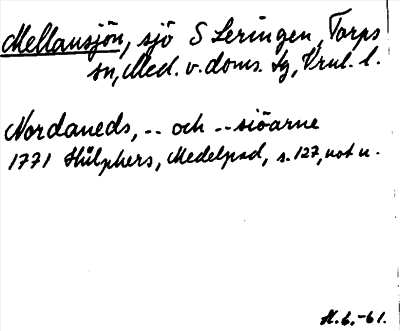 Mellansjön, sjö S Leringen, Torps
sn, Med. v. doms. Lg, Vrul. l.
Nordaneds, -- och -- siöarne
1771 Hülphers, Medelpad, s. 127, not u.
H. G. -61.